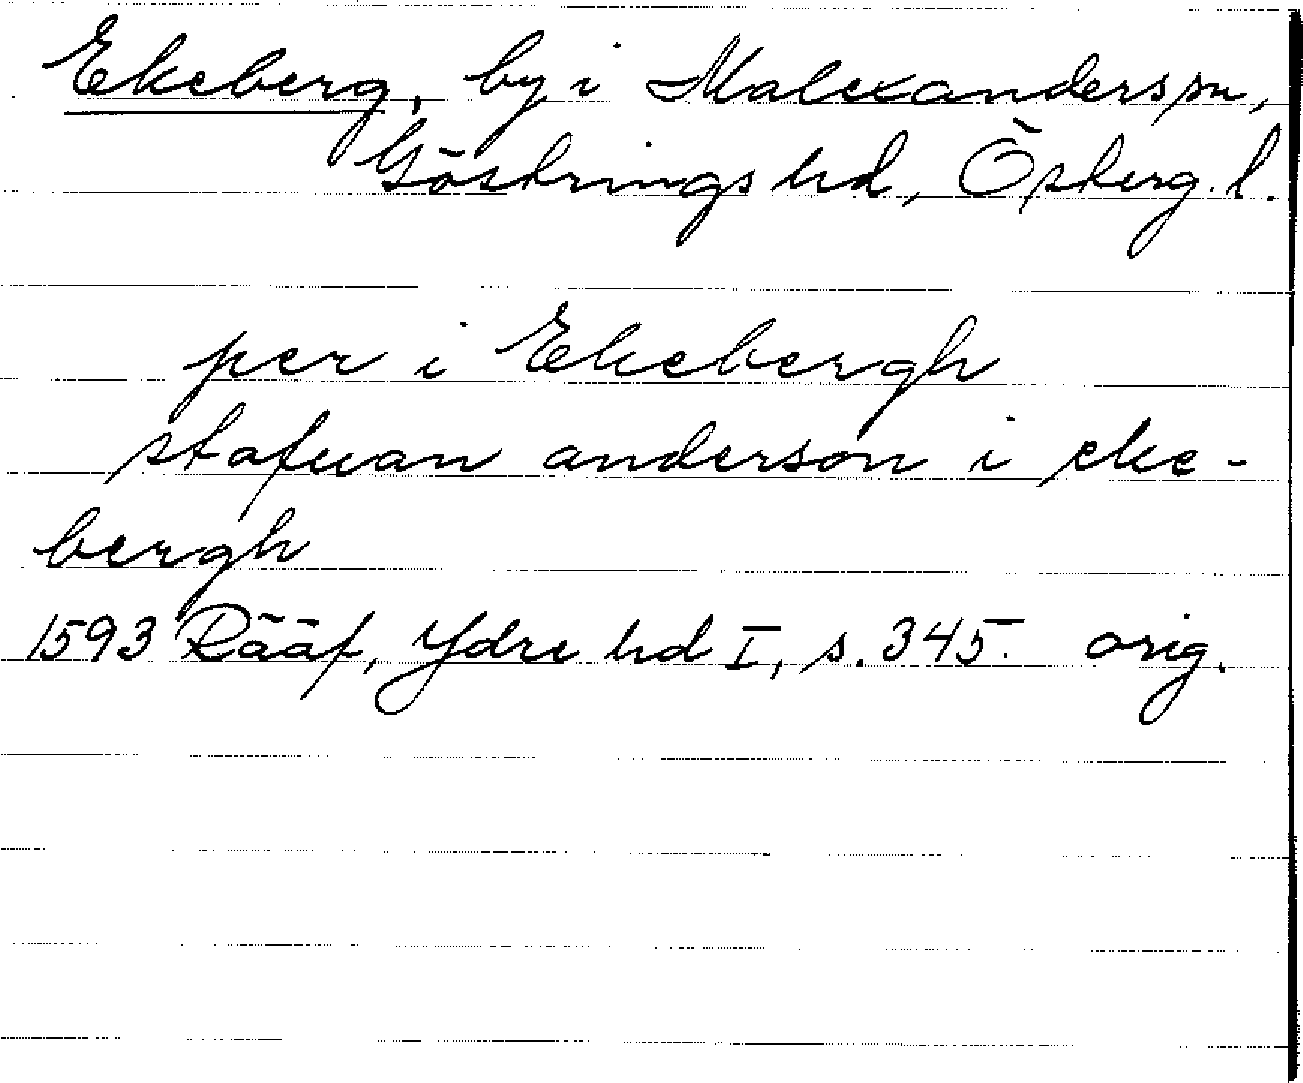 Ekeberg, by i Malexanders sn,
Göstrings hd, Österg. l.
per i Ekebergh
stafuan anderson i eke-
bergh
1593 Rääf, Ydre hd I, s. 345. orig.